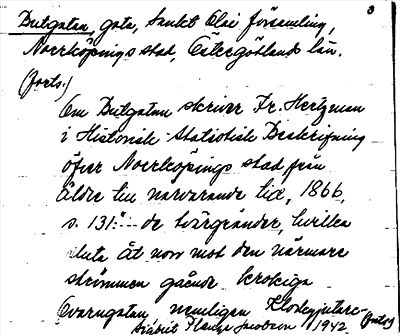 3
Dutgatan, gata, Sankt Olai församling,
Norrköpings stad, Östergötlands län.
(forts.)
Om Dutgatan skriver Fr. Hertzman
i Historisk-Statistisk Beskrifning
öfver Norrköpings stad, från
äldre till närvarande tid, 1866,
s. 131: "--- de tvärgränder, hvilka
sluta åt norr mot den närmare
strömmen gående krokiga
Qvarngatan, nemligen Klockgjutare-
Jacobson 1942. (forts.)